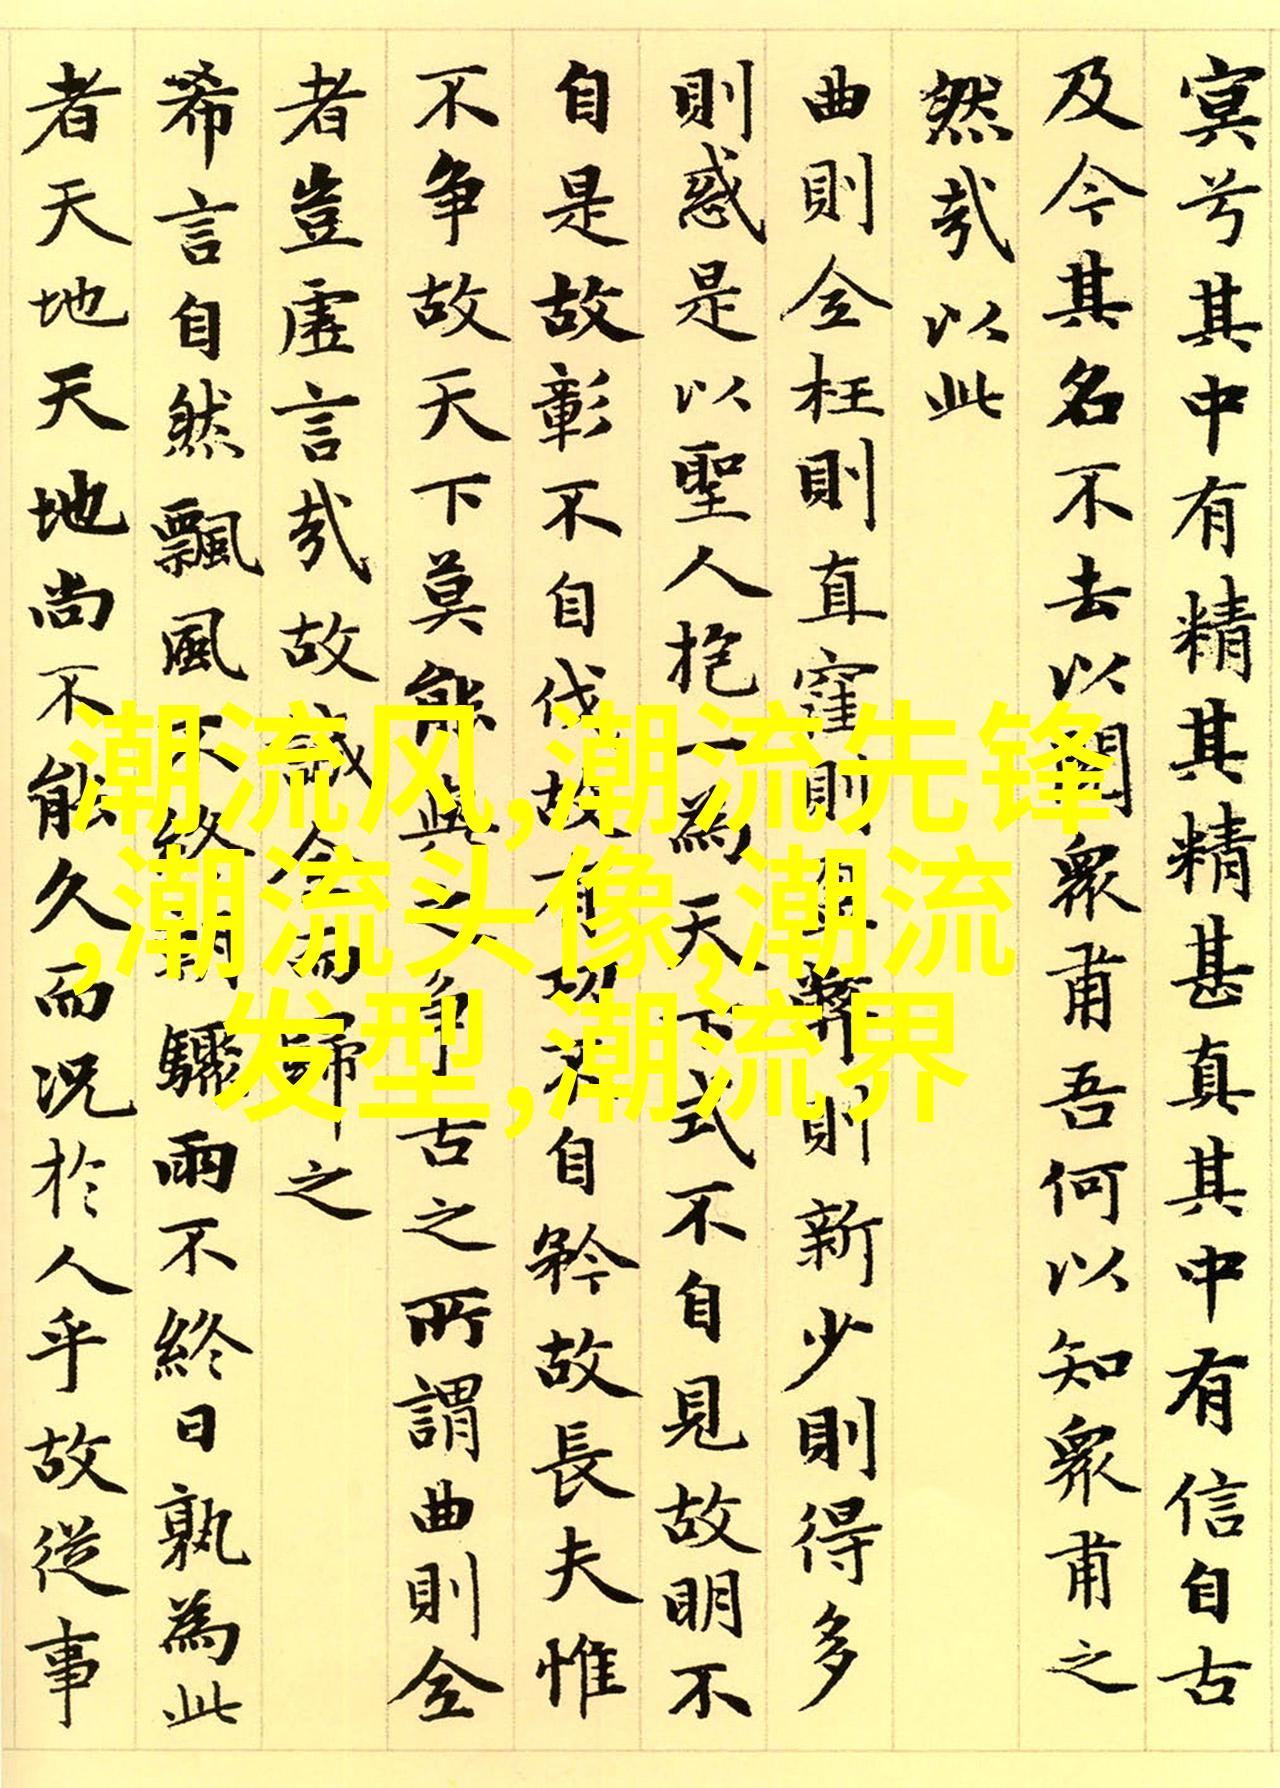 冥兮其中有精其精甚真其中有信自古
及今其名不去以閱衆甫吾何以知衆甫之
然哉以此
曲則全枉則直窪則盈弊則新少則得多
則惑是以聖人抱一為天下式不自見故明不
自是故彰不自伐故有功不自矜故長夫惟
不争故天下莫能與之争古之所謂曲則全
者豈虛言哉故誠全而歸之
希言自然飄風不終朝驟雨不終日孰為此
者天地天地尚不能久而况於人乎故從事
潮流风,潮流先锋
,潮流头像,潮流
发型,潮流界